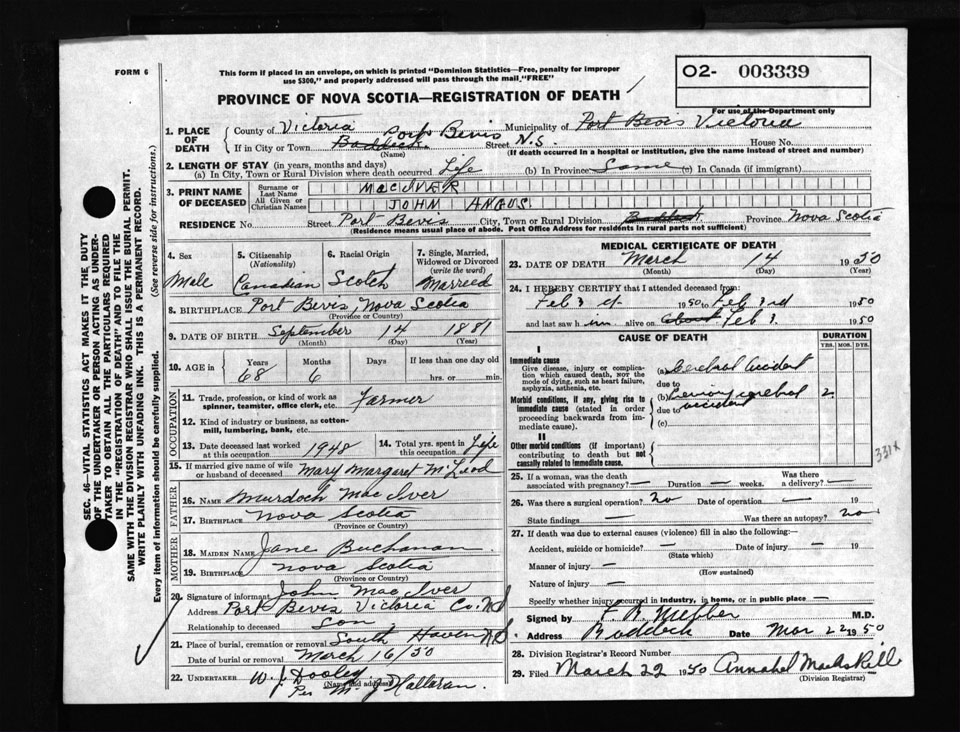 FORM 6
This form if placed in an envelope, on which is printed "Dominion Statistics—Free, penalty for improper
use $300," and properly addressed will pass through the mail "FREE"
O2- 003339
For use of the Department only
PROVINCE OF NOVA SCOTIA—REGISTRATION OF DEATH
1. PLACE OF DEATH
County of Victoria Municipality of Port Bevis Victoria
If in City or Town Baddeck Port Bevis Street N.S. House No.
(Name) (If death occurred in a hospital or institution, give the name instead of street and number)
2. LENGTH OF STAY (in years, months and days)
(a) In City, Town or Rural Division where death occurred Life (b) In Province Same (c) In Canada (if immigrant)
3. PRINT NAME OF DECEASED
Surname or Last Name MACIVER
All Given or Christian Names JOHN ANGUS
RESIDENCE No. Street Port Bevis City, Town or Rural Division Baddeck Province Nova Scotia
(Residence means usual place of abode. Post Office Address for residents in rural parts not sufficient)
4. Sex Male
5. Citizenship (Nationality) Canadian
6. Racial Origin Scotch
7. Single, Married, Widowed or Divorced (write the word) Married
8. BIRTHPLACE Port Bevis, Nova Scotia
(Province or Country)
9. DATE OF BIRTH September 14 1881
(Month) (Day) (Year)
10. AGE in Years 68 Months 6 Days If less than one day old hrs. or min.
OCCUPATION
11. Trade, profession, or kind of work as spinner, teamster, office clerk, etc. Farmer
12. Kind of industry or business, as cotton-mill, lumbering, bank, etc.
13. Date deceased last worked at this occupation 1948
14. Total yrs. spent in this occupation Life
15. If married give name of wife or husband of deceased Mary Margaret McLeod
FATHER
16. NAME Murdoch MacIver
17. BIRTHPLACE Nova Scotia
(Province or Country)
MOTHER
18. MAIDEN NAME Jane Buchanan
19. BIRTHPLACE Nova Scotia
(Province or Country)
20. Signature of informant John MacIver
Address Port Bevis Victoria Co. N.S.
Relationship to deceased Son
21. Place of burial, cremation or removal South Haven N.S.
Date of burial or removal March 16/50
22. UNDERTAKER W. J. Dooley
(Name and address)
Per M. J. Hallaran.
MEDICAL CERTIFICATE OF DEATH
23. DATE OF DEATH March 14 1950
(Month) (Day) (Year)
24. I HEREBY CERTIFY that I attended deceased from:
Feb 3 1950 Feb 3rd 1950
and last saw h im alive on about Feb 3. 1950
CAUSE OF DEATH DURATION
YRS. MOS. DYS.
I
Immediate cause
Give disease, injury or complication which caused death, nor the mode of dying, such as heart failure, asphyxia, asthenia, etc.
(a) Cerebral accident
due to
Morbid conditions, if any, giving rise to immediate cause (stated in order proceeding backwards from immediate cause).
(b) Previous cerebral 2
due to accident
(c)
II
Other morbid conditions (if important) contributing to death but not causally related to immediate cause.
331X
25. If a woman, was the death associated with pregnancy? — Duration — weeks. Was there a delivery? —
26. Was there a surgical operation? No Date of operation — 19
State findings — Was there an autopsy? no
27. If death was due to external causes (violence) fill in also the following:—
Accident, suicide or homicide? — Date of injury — 19
(State which)
Manner of injury —
(How sustained)
Nature of injury —
Specify whether injury occurred in industry, in home, or in public place —
Signed by F. R. M.D.
Address Baddeck Date Mar 22 1950
28. Division Registrar's Record Number
29. Filed March 22 1950 Annabel MacAskill
(Division Registrar)
SEC. 46—VITAL STATISTICS ACT MAKES IT THE DUTY
OF THE UNDERTAKER OR PERSON ACTING AS UNDER-
TAKER TO OBTAIN ALL THE PARTICULARS REQUIRED
IN THE "REGISTRATION OF DEATH" AND TO FILE THE
SAME WITH THE DIVISION REGISTRAR WHO SHALL ISSUE THE BURIAL PERMIT.
WRITE PLAINLY WITH UNFADING INK. THIS IS A PERMANENT RECORD.
Every item of information should be carefully supplied. (See reverse side for instructions.)